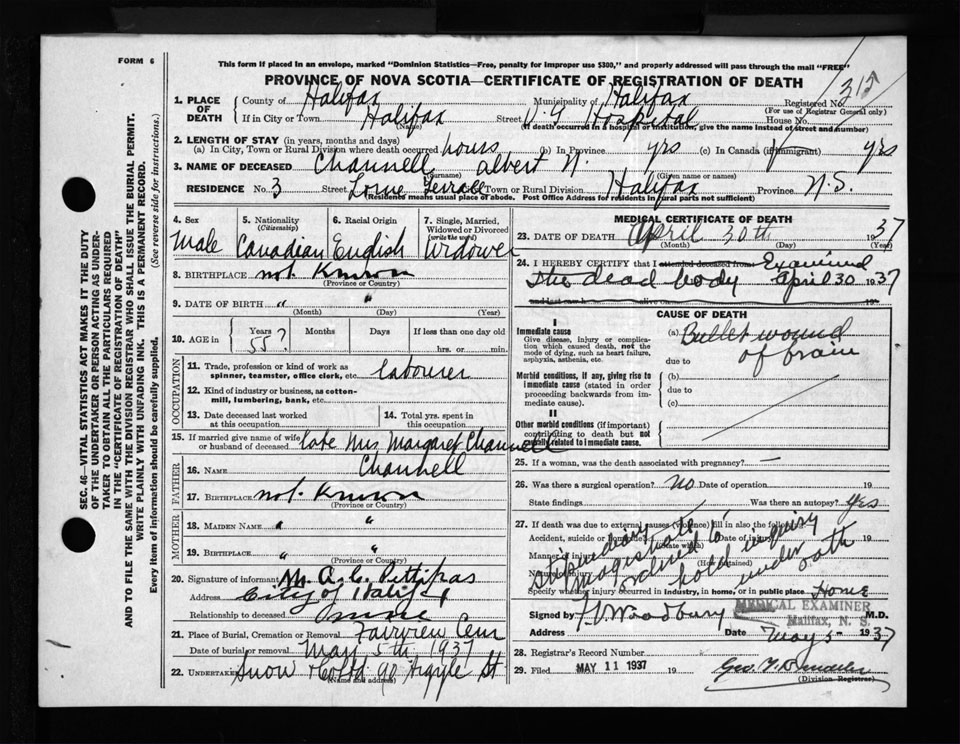 FORM 6
This form if placed in an envelope, marked "Dominion Statistics—Free, penalty for improper use $300," and properly addressed will pass through the mail "FREE"
PROVINCE OF NOVA SCOTIA—CERTIFICATE OF REGISTRATION OF DEATH
1. PLACE OF DEATH
County of Halifax Municipality of Halifax Registered No. 315
(For use of Registrar General only)
If in City or Town Halifax Street V.G Hospital House No.
(Name) (If death occurred in a hospital or institution, give the name instead of street and number)
2. LENGTH OF STAY (in years, months and days)
(a) In City, Town or Rural Division where death occurred hours (b) In Province yrs (c) In Canada (if immigrant) yrs
3. NAME OF DECEASED Channell Albert N.
(Surname) (Given name or names)
RESIDENCE No. 3 Street Lorne Terrace Town or Rural Division Halifax Province N.S.
(Residence means usual place of abode. Post Office Address for residents in rural parts not sufficient)
4. Sex
Male
5. Nationality
(Citizenship)
Canadian
6. Racial Origin
English
7. Single, Married, Widowed or Divorced
(write the word)
Widower
8. BIRTHPLACE not Known
(Province or Country)
9. DATE OF BIRTH " "
(Month) (Day) (Year)
10. AGE in
Years Months Days If less than one day old
55? hrs. or min.
OCCUPATION
11. Trade, profession or kind of work as
spinner, teamster, office clerk, etc. labourer
12. Kind of industry or business, as cotton-
mill, lumbering, bank, etc.
13. Date deceased last worked
at this occupation
14. Total yrs. spent in
this occupation
15. If married give name of wife
or husband of deceased late Mrs Margaret Channell
FATHER
16. NAME Channell
17. BIRTHPLACE not Known
(Province or Country)
MOTHER
18. MAIDEN NAME " "
19. BIRTHPLACE " "
(Province or Country)
20. Signature of informant M. A. C. Pettipas
Address City of Halifax
Relationship to deceased none
21. Place of Burial, Cremation or Removal Fairview Cem
Date of burial or removal May 5th 1937
22. UNDERTAKER Snow & Co Ltd 90 Argyle St
(Name and address)
MEDICAL CERTIFICATE OF DEATH
23. DATE OF DEATH April 30th 1937
(Month) (Day) (Year)
24. I HEREBY CERTIFY that I attended deceased from Examined
the dead body April 30 1937
and last saw alive on 19
CAUSE OF DEATH
I
Immediate cause
Give disease, injury or complication which caused death, not the mode of dying, such as heart failure, asphyxia, asthenia, etc.
(a) Bullet wound
of brain
due to
Morbid conditions, if any, giving rise to immediate cause (stated in order proceeding backwards from immediate cause).
(b)
due to
(c)
II
Other morbid conditions (if important) contributing to death but not causally related to immediate cause.
25. If a woman, was the death associated with pregnancy? —
26. Was there a surgical operation? No Date of operation 19
State findings Was there an autopsy? Yes
27. If death was due to external causes (violence) fill in also the following:
Accident, suicide or homicide? Date of injury 19
(State which)
Manner of injury
(How sustained)
Nature of injury
Specify whether injury occurred in Industry, in home, or in public place Home
stipendiary
magistrate
to
hold inquiry
under oath
Signed by F. V. Woodbury M.D.
MEDICAL EXAMINER
Halifax, N. S.
Address Date May 5- 1937
28. Registrar's Record Number
29. Filed MAY 11 1937 19
(Division Registrar)
SEC. 46—VITAL STATISTICS ACT MAKES IT THE DUTY
OF THE UNDERTAKER OR PERSON ACTING AS UNDER-
TAKER TO OBTAIN ALL THE PARTICULARS REQUIRED
IN THE "CERTIFICATE OF REGISTRATION OF DEATH"
AND TO FILE THE SAME WITH THE DIVISION REGISTRAR WHO SHALL ISSUE THE BURIAL PERMIT.
WRITE PLAINLY WITH UNFADING INK. THIS IS A PERMANENT RECORD.
Every item of information should be carefully supplied. (See reverse side for instructions.)